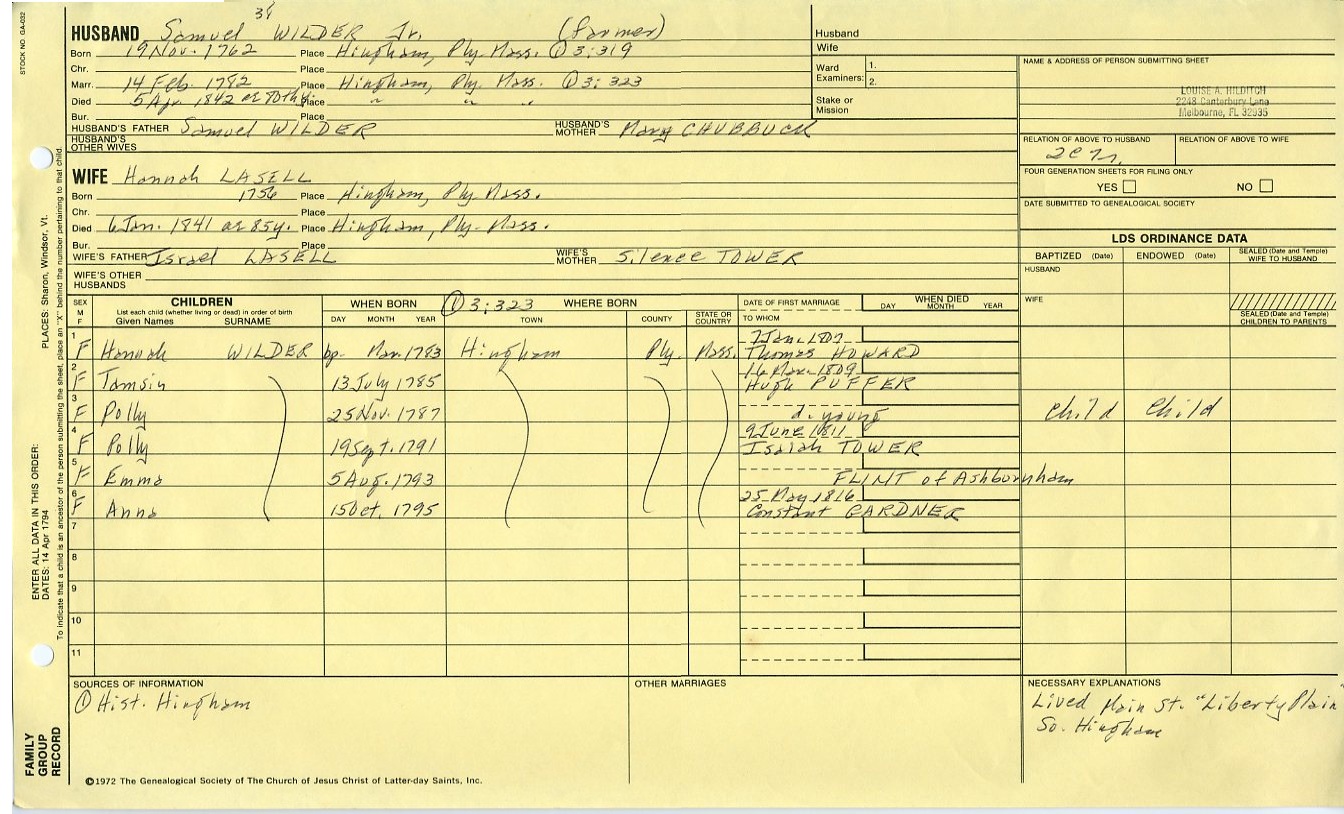 STOCK NO. GA-032
34
HUSBAND Samuel WILDER Jr. (farmer)
Born 19 Nov. 1762 Place Hingham, Ply. Mass. ① 3:319
Chr. Place
Marr. 14 Feb. 1782 Place Hingham, Ply. Mass. ① 3:323
Died 5 Apr. 1842 ae 80th y Place " " "
Bur. Place
HUSBAND'S FATHER Samuel WILDER HUSBAND'S MOTHER Mary CHUBBUCK
HUSBAND'S OTHER WIVES
WIFE Hannah LASELL
Born 1756 Place Hingham, Ply. Mass.
Chr. Place
Died 6 Jan. 1841 ae 85y. Place Hingham, Ply. Mass.
Bur. Place
WIFE'S FATHER Israel LASELL WIFE'S MOTHER Silence TOWER
WIFE'S OTHER HUSBANDS
Husband
Wife
Ward Examiners: 1.
2.
Stake or Mission
NAME & ADDRESS OF PERSON SUBMITTING SHEET
LOUISE A. HILDITCH
2248 Canterbury Lane
Melbourne, FL 32935
RELATION OF ABOVE TO HUSBAND RELATION OF ABOVE TO WIFE
FOUR GENERATION SHEETS FOR FILING ONLY
YES NO
DATE SUBMITTED TO GENEALOGICAL SOCIETY
LDS ORDINANCE DATA
BAPTIZED (Date) ENDOWED (Date) SEALED (Date and Temple) WIFE TO HUSBAND
HUSBAND
WIFE
SEALED (Date and Temple) CHILDREN TO PARENTS
SEX M F CHILDREN WHEN BORN ① 3:323 WHERE BORN DATE OF FIRST MARRIAGE WHEN DIED
List each child (whether living or dead) in order of birth
Given Names SURNAME DAY MONTH YEAR TOWN COUNTY STATE OR COUNTRY TO WHOM DAY MONTH YEAR
7 Jan. 1807
1 F Hannah WILDER bp. Mar. 1783 Hingham Ply. Mass. Thomas HOWARD
16 Mar. 1809
2 F Tamsin 13 July 1785 Hugh PUFFER
3 F Polly 25 Nov. 1787 d. young Child Child
9 June 1811
4 F Polly 19 Sept. 1791 Isaiah TOWER
5 F Emma 5 Aug. 1793 FLINT of Ashburnham
25 May 1816
6 F Anna 15 Oct. 1795 Constant GARDNER
7
8
9
10
11
SOURCES OF INFORMATION
① Hist. Hingham
OTHER MARRIAGES
NECESSARY EXPLANATIONS
Lived Main St. "Liberty Plain"
So. Hingham
©1972 The Genealogical Society of The Church of Jesus Christ of Latter-day Saints, Inc.
FAMILY GROUP RECORD
ENTER ALL DATA IN THIS ORDER:
DATES: 14 Apr 1794
PLACES: Sharon, Windsor, Vt.
To indicate that a child is an ancestor of the person submitting the sheet, place an "X" behind the number pertaining to that child.